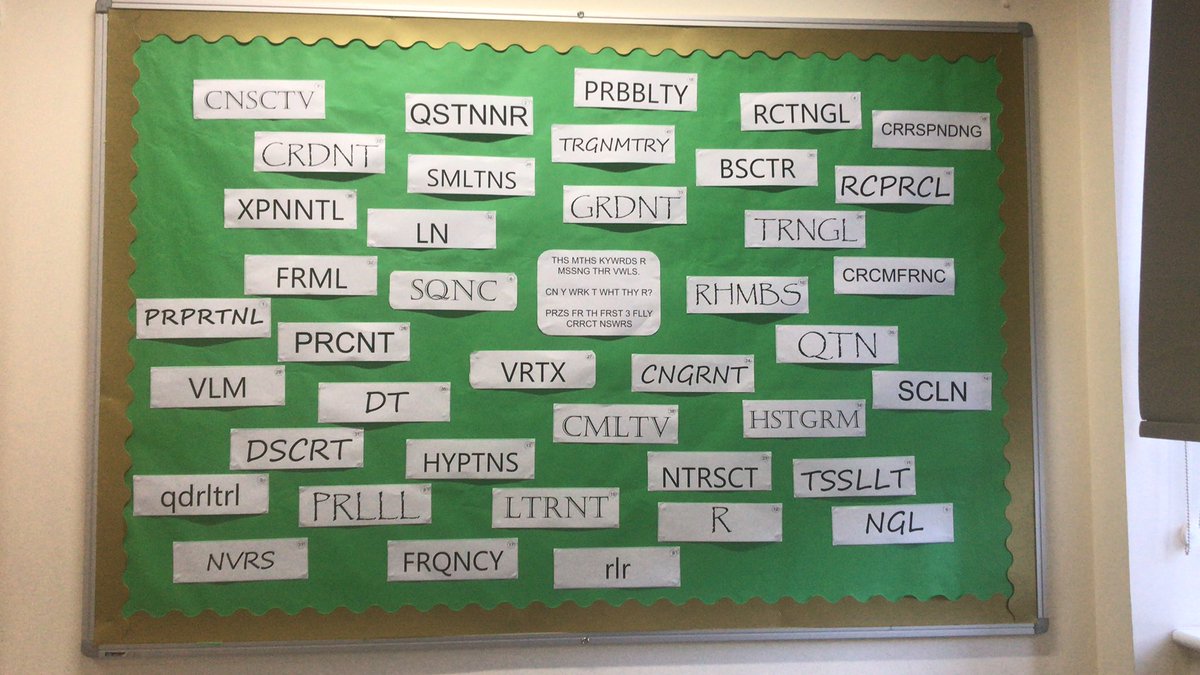 CNSCTV
QSTNNR
PRBBLTY
RCTNGL
CRRSPNDNG
CRDNT
SMLTNS
TRGNMTRY
BSCTR
RCPRCL
XPNNTL
LN
GRDNT
TRNGL
FRML
SQNC
THS MTHS KYWRDS R
MSSNG THR VWLS.
CN Y WRK T WHT THY R?
PRZS FR TH FRST 3 FLLY
CRRCT NSWRS
RHMBS
CRCMFRNC
PRPRTNL
PRCNT
VRTX
CNGRNT
QTN
VLM
DT
CMLTV
HSTGRM
SCLN
DSCRT
HYPTNS
NTRSCT
TSSLLT
qdrltrl
PRLLL
LTRNT
R
NGL
NVRS
FRQNCY
rlr